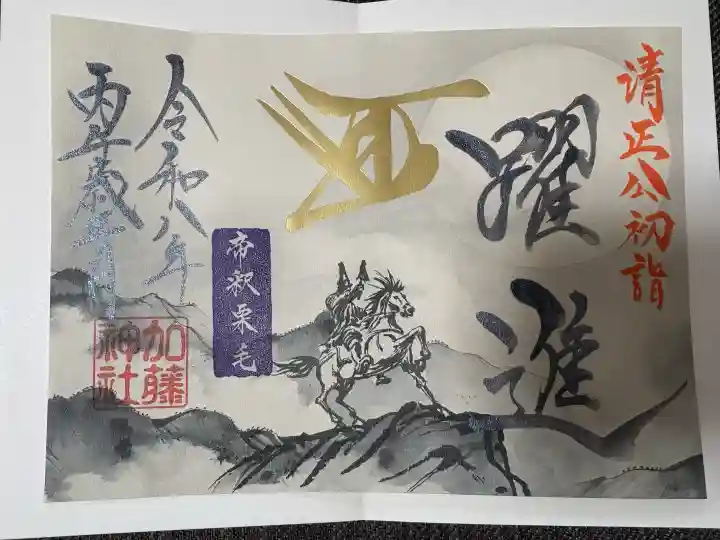 清正公初詣
躍進
帝釈栗毛
令和八年
丙午歳
加藤
神社